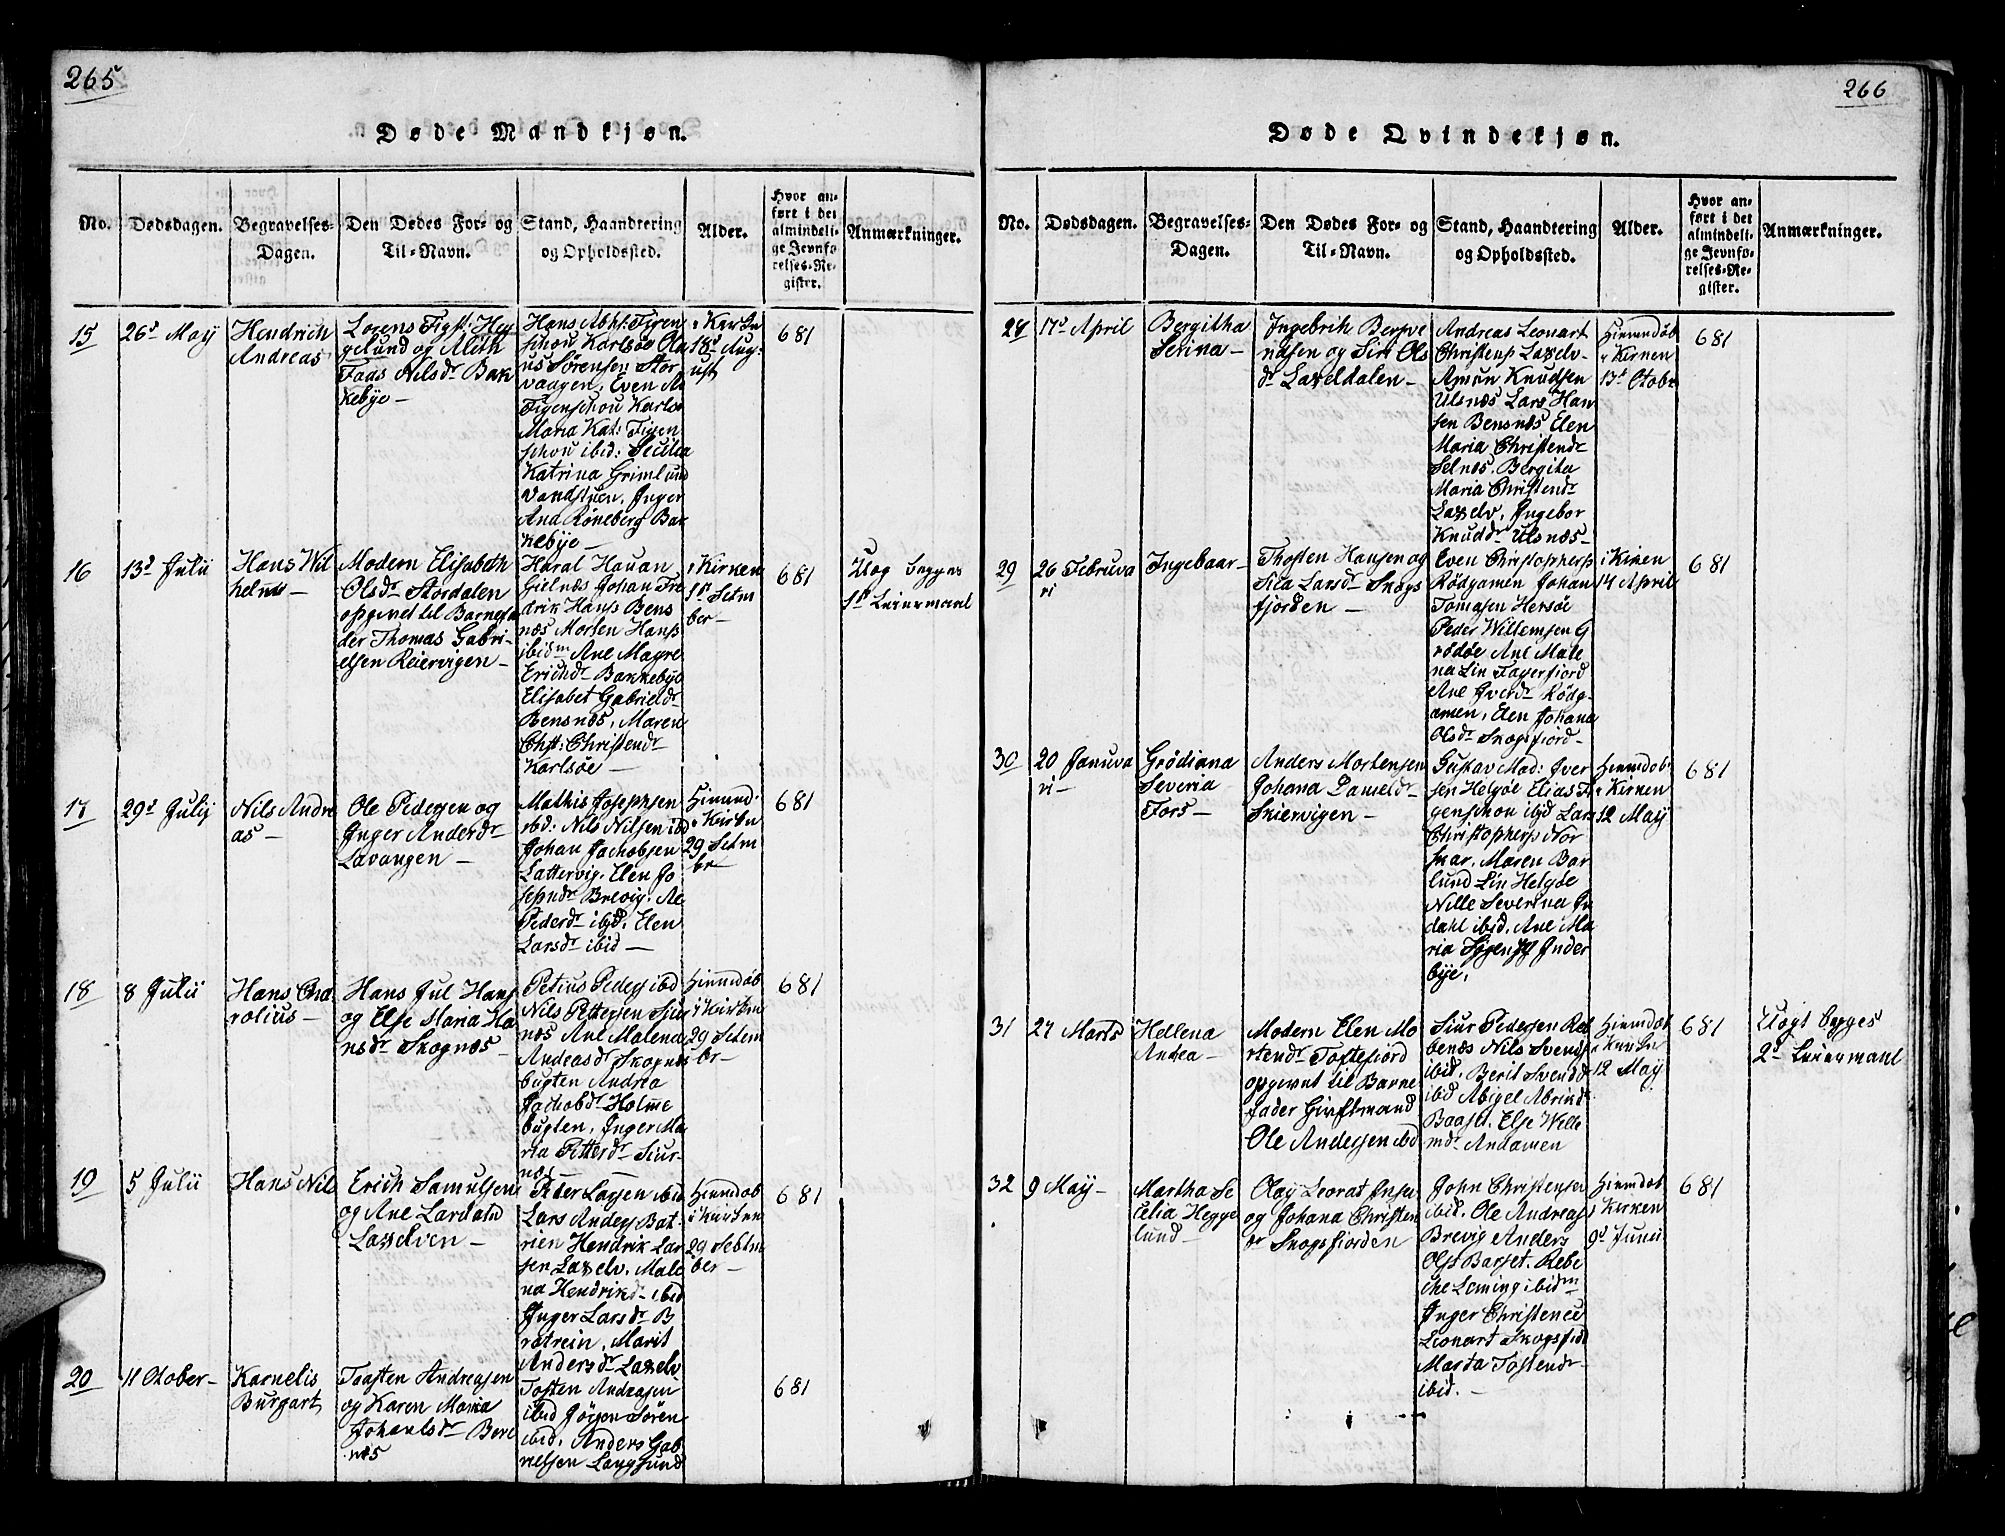 265
Døde Mandkjøn.
No.
Dødsdagen.
Begravelses-
Dagen.
Den Dødes For- og
Til-Navn.
Stand, Haandtering
og Opholdssted.
Alder.
Hvor an-
ført i det
almindeli-
ge Jevnfø-
relses-Re-
gister.
Anmærkninger.
15
26d May
Hendrich
Andreas
og Aleth
Nilsdr Bak
kebye
Hans Abht: Figen
schou Karlsøe Ola
us Sørensen Stor
vaagen, Even
Figenschou Karlsø
Maria Kat: Figen
schou ibid: Secilia
Katrina Grimlund
Vandstuen, Inger
Ana Røneberg Bak
kebye
i Kirken
18d Aug:
ust
681
16
13d Julii
Hans Wil
helm
Modern Elisabeth
Olsdr Stordalen
opgivet til Barnefa
der Thomas Gabri-
elsen Reiervigen
Haral Hauan
Gielnæs Johan Fre
drik Hanss Bens
næs Morten Hanss
ibidm Ane Magre
Erichdr Bakkebye
Elisabet Gabrieldr
Bensnæs, Maren
Chst: Christendr
Karlsøe
i Kirken
1d Setm
ber
681
Uæg begges
1st Leiermaal
17
29d Julij
Nils Andre
as
Ole Pedersen og
Inger Andersdr
Lavangen
Mathis Josephsen
ibd: Nils Nilsen ibd
Johan Jachobsen
Lattervig, Elen Jo
sepndr Brevig, Ae
Pederdr ibd, Elen
Larsdr ibid
Hiemd:
i Kirken
29 Setm
br
681
18
8 Julii
Hans Cha
rolius
Hans Jul Hans
og Else Maria Ha
nsdr Skognæs
Petrus Peders ibd
Nils Pettersen Siur
næs Ane Malena
Andreasdr Skognes
bugten Andrea
Jachobdr Holme
bugten, Inger Ma
ria Pitterdr Siur-
næs
Hiemdøb
i Kirken
29 Setem
ber
681
19
5 Julii
Hans Nils
Erich Samulsen
og Ane Larsdatr
Laxelven
Peder Larsen ibid
Lars Anders Bat-
rien Hendrik Lar
sen Laxelv, Male
na Hendrikdr ibid
Inger Larsdr B
ratrein, Marit
Andersdr Laxelv
Hiemdøb
i Kirken
29 Sebtm
ber
681
20
11 Otober
Karnelis
Burgart
Taasten Andreasen
og Karen Maria
Johanesdr Bere
næs
Tosten Andreasen
ibid Jørgen Søren
ibid, Anders Gab
rielsen Langsund
681
266
Døde Qvindekjøn.
No.
Dødsdagen.
Begravelses-
Dagen.
Den Dødes For- og
Til-Navn.
Stand, Haandtering
og Opholdssted.
Alder.
Hvor an-
ført i det
almindeli-
ge Jevnfø-
relses-Re-
gister.
Anmærkninger.
28
17d April
Bergitha
Serina
Ingebrik Berpve
ndsen og Siri Ols
dr Laxeldalen
Andreas Leonart
Christens Laxelv
Amun Knudsen
Ulsnæs Lars Han
sen Bensnæs Elen
Maria Christendr
Selnæs, Bergita
Maria Christendr
Laxelv, Ingebor
Knuddr Ulsnæs
Hiemdøb
i Kirken
13d Otobr
681
29
26 Februva
ri
Ingebaar
Thosten Hansen og
Sila Larsdr Skogs
fjorden
Even Christophersp
Rødgamen Johan
Tomasen Hersøe
Peder Willemsen G
rødøe Ane Male
na Lin Fagerfiord
Ane Iverdr Rødg-
amen, Elen Johana
Olsdr Skogsfiord
i Kirken
14 April
681
30
20 Januva
ri
Grødiana
Severia
Fors
Anders Mortensen
Johana Danieldr
Skiervigen
Gustav Mad: Iver
sen Helgøe Elias Fi
genschou ibid Lars
Christophersp Nor
skar, Maren Bar
lund Lin Helgøe
Nille Severina In
dahl ibid, Ane Ma
ria Inder
bye,
Hiemdøb
i Kirken
12 May
681
31
27 Marts
Hellena
Andrea
Modern Elen Mo
rtendr Toftefiord
opgevet til Barne
fader Giftmand
Ole Andersen ibd
Siur Pedersen Reb
benæs Nils Svends
ibid, Berit Svendd
ibid Abigel Abrindr
Baast, Else Wille
mdr Andamen
Hiemdøb
i Kirken
12 May
681
Uægt begges
2d Leiermaal
32
9 May
Martha Se
celia Hegge
lund
Olay Leorat Inse
og Johana Christen
dr Skogsfiorden
John Christensen
ibid, Ole Andreas
Brevig Anders
Ols Barset, Rebe
che Leming ibidm
Inger Christence
Leonart Skogsfid
Marta Tostendr
ibid.
Hiemdøb
i Kirken
9d Junii
681